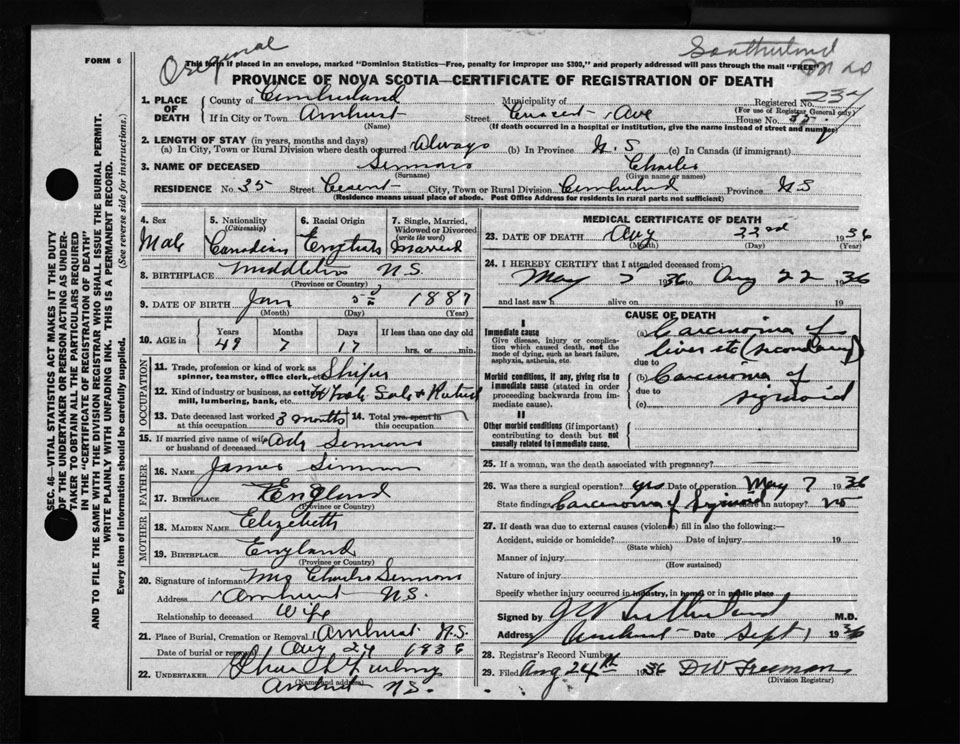 FORM 6
Original
Sutherland
This form if placed in an envelope, marked "Dominion Statistics—Free, penalty for improper use $300," and properly addressed will pass through the mail "FREE"
PROVINCE OF NOVA SCOTIA—CERTIFICATE OF REGISTRATION OF DEATH
1. PLACE OF DEATH County of Cumberland Municipality of Registered No. 234
(For use of Registrar General only)
If in City or Town Amherst Street Crescent Ave House No. 35
(Name) (If death occurred in a hospital or institution, give the name instead of street and number)
2. LENGTH OF STAY (in years, months and days)
(a) In City, Town or Rural Division where death occurred Always (b) In Province N.S (c) In Canada (if immigrant)
3. NAME OF DECEASED Simmons Charles
(Surname) (Given name or names)
RESIDENCE No. 35 Street Cresent City, Town or Rural Division Cumberland Province NS
(Residence means usual place of abode. Post Office Address for residents in rural parts not sufficient)
4. Sex 5. Nationality (Citizenship) 6. Racial Origin 7. Single, Married, Widowed or Divorced (write the word)
Male Canadian English Married
8. BIRTHPLACE N.S.
(Province or Country)
9. DATE OF BIRTH Jan 5 1887
(Month) (Day) (Year)
10. AGE in Years Months Days If less than one day old
49 7 17 hrs. or min.
OCCUPATION
11. Trade, profession or kind of work as spinner, teamster, office clerk, etc. Shipper
12. Kind of industry or business, as cotton mill, lumbering, bank, etc. Whole Sale & Retail
13. Date deceased last worked at this occupation 3 months 14. Total yrs. spent in this occupation
15. If married give name of wife or husband of deceased Ada Simmons
FATHER
16. NAME James Simmons
17. BIRTHPLACE England
(Province or Country)
MOTHER
18. MAIDEN NAME Elizabeth
19. BIRTHPLACE England
(Province or Country)
20. Signature of informant Mrs Charles Simmons
Address Amherst N.S.
Relationship to deceased Wife
21. Place of Burial, Cremation or Removal Amherst N.S.
Date of burial or removal Aug 24 1936
22. UNDERTAKER
(Name and address)
Amherst N.S.
MEDICAL CERTIFICATE OF DEATH
23. DATE OF DEATH Aug 22nd 1936
(Month) (Day) (Year)
24. I HEREBY CERTIFY that I attended deceased from:
May 7 1936 to Aug 22 1936
and last saw h alive on 19
CAUSE OF DEATH
I
Immediate cause
Give disease, injury or complication which caused death, not the mode of dying, such as heart failure, asphyxia, asthenia, etc.
(a) Carcinoma of
liver etc (secondary)
due to
Morbid conditions, if any, giving rise to immediate cause (stated in order proceeding backwards from immediate cause).
(b) Carcinoma of
due to sigmoid
(c)
II
Other morbid conditions (if important) contributing to death but not causally related to immediate cause.
25. If a woman, was the death associated with pregnancy?
26. Was there a surgical operation? yes Date of operation May 7 1936
State findings Carcinoma of Sigmoid Was there an autopsy? No
27. If death was due to external causes (violence) fill in also the following:—
Accident, suicide or homicide? Date of injury 19
(State which)
Manner of injury
(How sustained)
Nature of injury
Specify whether injury occurred in industry, in home or in public place
Signed by Sutherland M.D.
Address Amherst Date Sept 1 1936
28. Registrar's Record Number
29. Filed Aug 24th 1936 D W Freeman
(Division Registrar)
SEC. 46—VITAL STATISTICS ACT MAKES IT THE DUTY
OF THE UNDERTAKER OR PERSON ACTING AS UNDER-
TAKER TO OBTAIN ALL THE PARTICULARS REQUIRED
IN THE "CERTIFICATE OF REGISTRATION OF DEATH"
AND TO FILE THE SAME WITH THE DIVISION REGISTRAR WHO SHALL ISSUE THE BURIAL PERMIT.
WRITE PLAINLY WITH UNFADING INK. THIS IS A PERMANENT RECORD.
Every item of information should be carefully supplied. (See reverse side for instructions.)